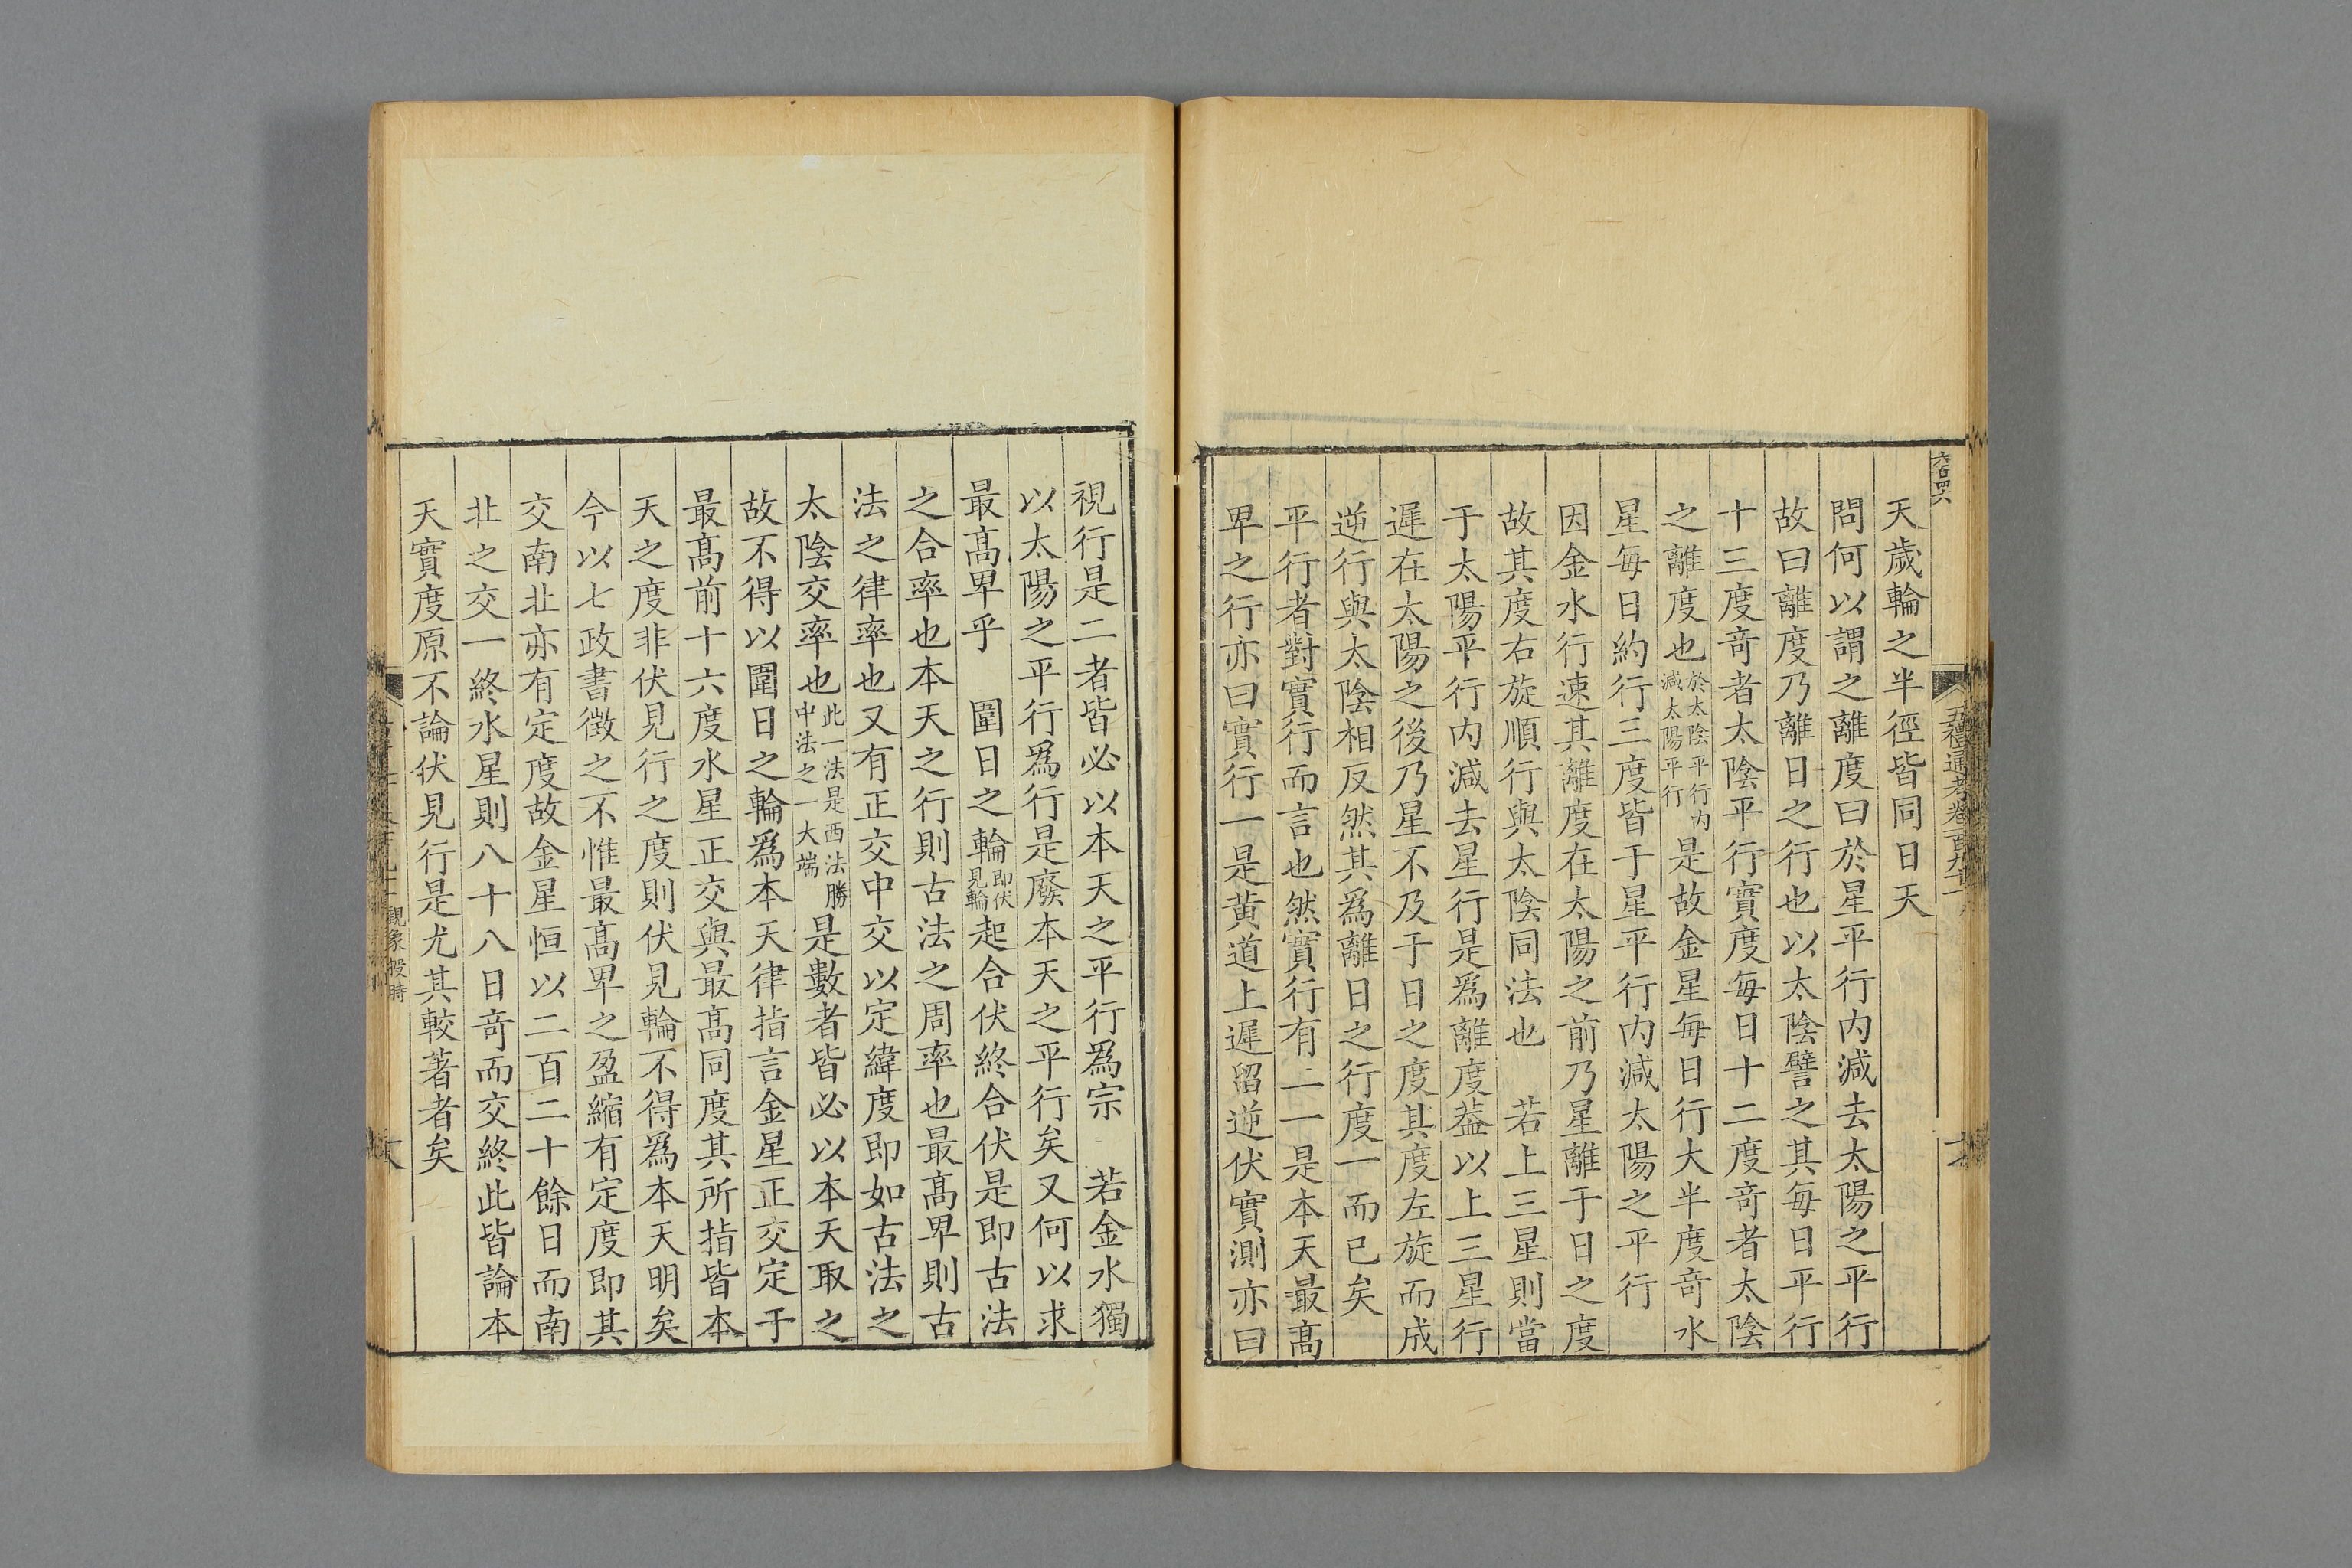 六百四六
天歲輪之半徑皆同日天
問何以謂之離度曰於星平行内減去太陽之平行
故曰離度乃離日之行也以太陰譬之其每日平行
十三度竒者太陰平行實度每日十二度竒者太陰
之離度也於太陰平行内減太陽平行是故金星每日行大半度竒水
星每日約行三度皆于星平行内減太陽之平行
因金水行速其離度在太陽之前乃星離于日之度
故其度右旋順行與太陰同法也　若上三星則當
于太陽平行内減去星行是爲離度葢以上三星行
遲在太陽之後乃星不及于日之度其度左旋而成
逆行與太陰相反然其爲離日之行度一而已矣
平行者對實行而言也然實行有二一是本天最髙
卑之行亦曰實行一是黄道上遲留逆伏實測亦曰
五禮通考卷一百九十
視行是二者皆必以本天之平行爲宗　若金水獨
以太陽之平行爲行是廢本天之平行矣又何以求
最髙卑乎　圍日之輪即伏見輪起合伏終合伏是即古法
之合率也本天之行則古法之周率也最髙卑則古
法之律率也又有正交中交以定緯度即如古法之
太陰交率也此一法是西法勝中法之一大端是數者皆必以本天取之
故不得以圍日之輪爲本天律指言金星正交定于
最髙前十六度水星正交與最髙同度其所指皆本
天之度非伏見行之度則伏見輪不得爲本天明矣
今以七政書徴之不惟最髙卑之盈縮有定度即其
交南北亦有定度故金星恒以二百二十餘日而南
北之交一終水星則八十八日竒而交終此皆論本
天實度原不論伏見行是尤其較著者矣
觀象授時